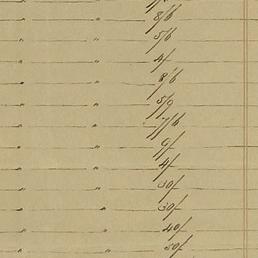 " " 8/6
" " 5/6
" " 4/
" " 8/6
" " 5/9
" " 7/6
" " 9/
" " 4/
" " 30/
" " 30/
" " 40/
" " 50/